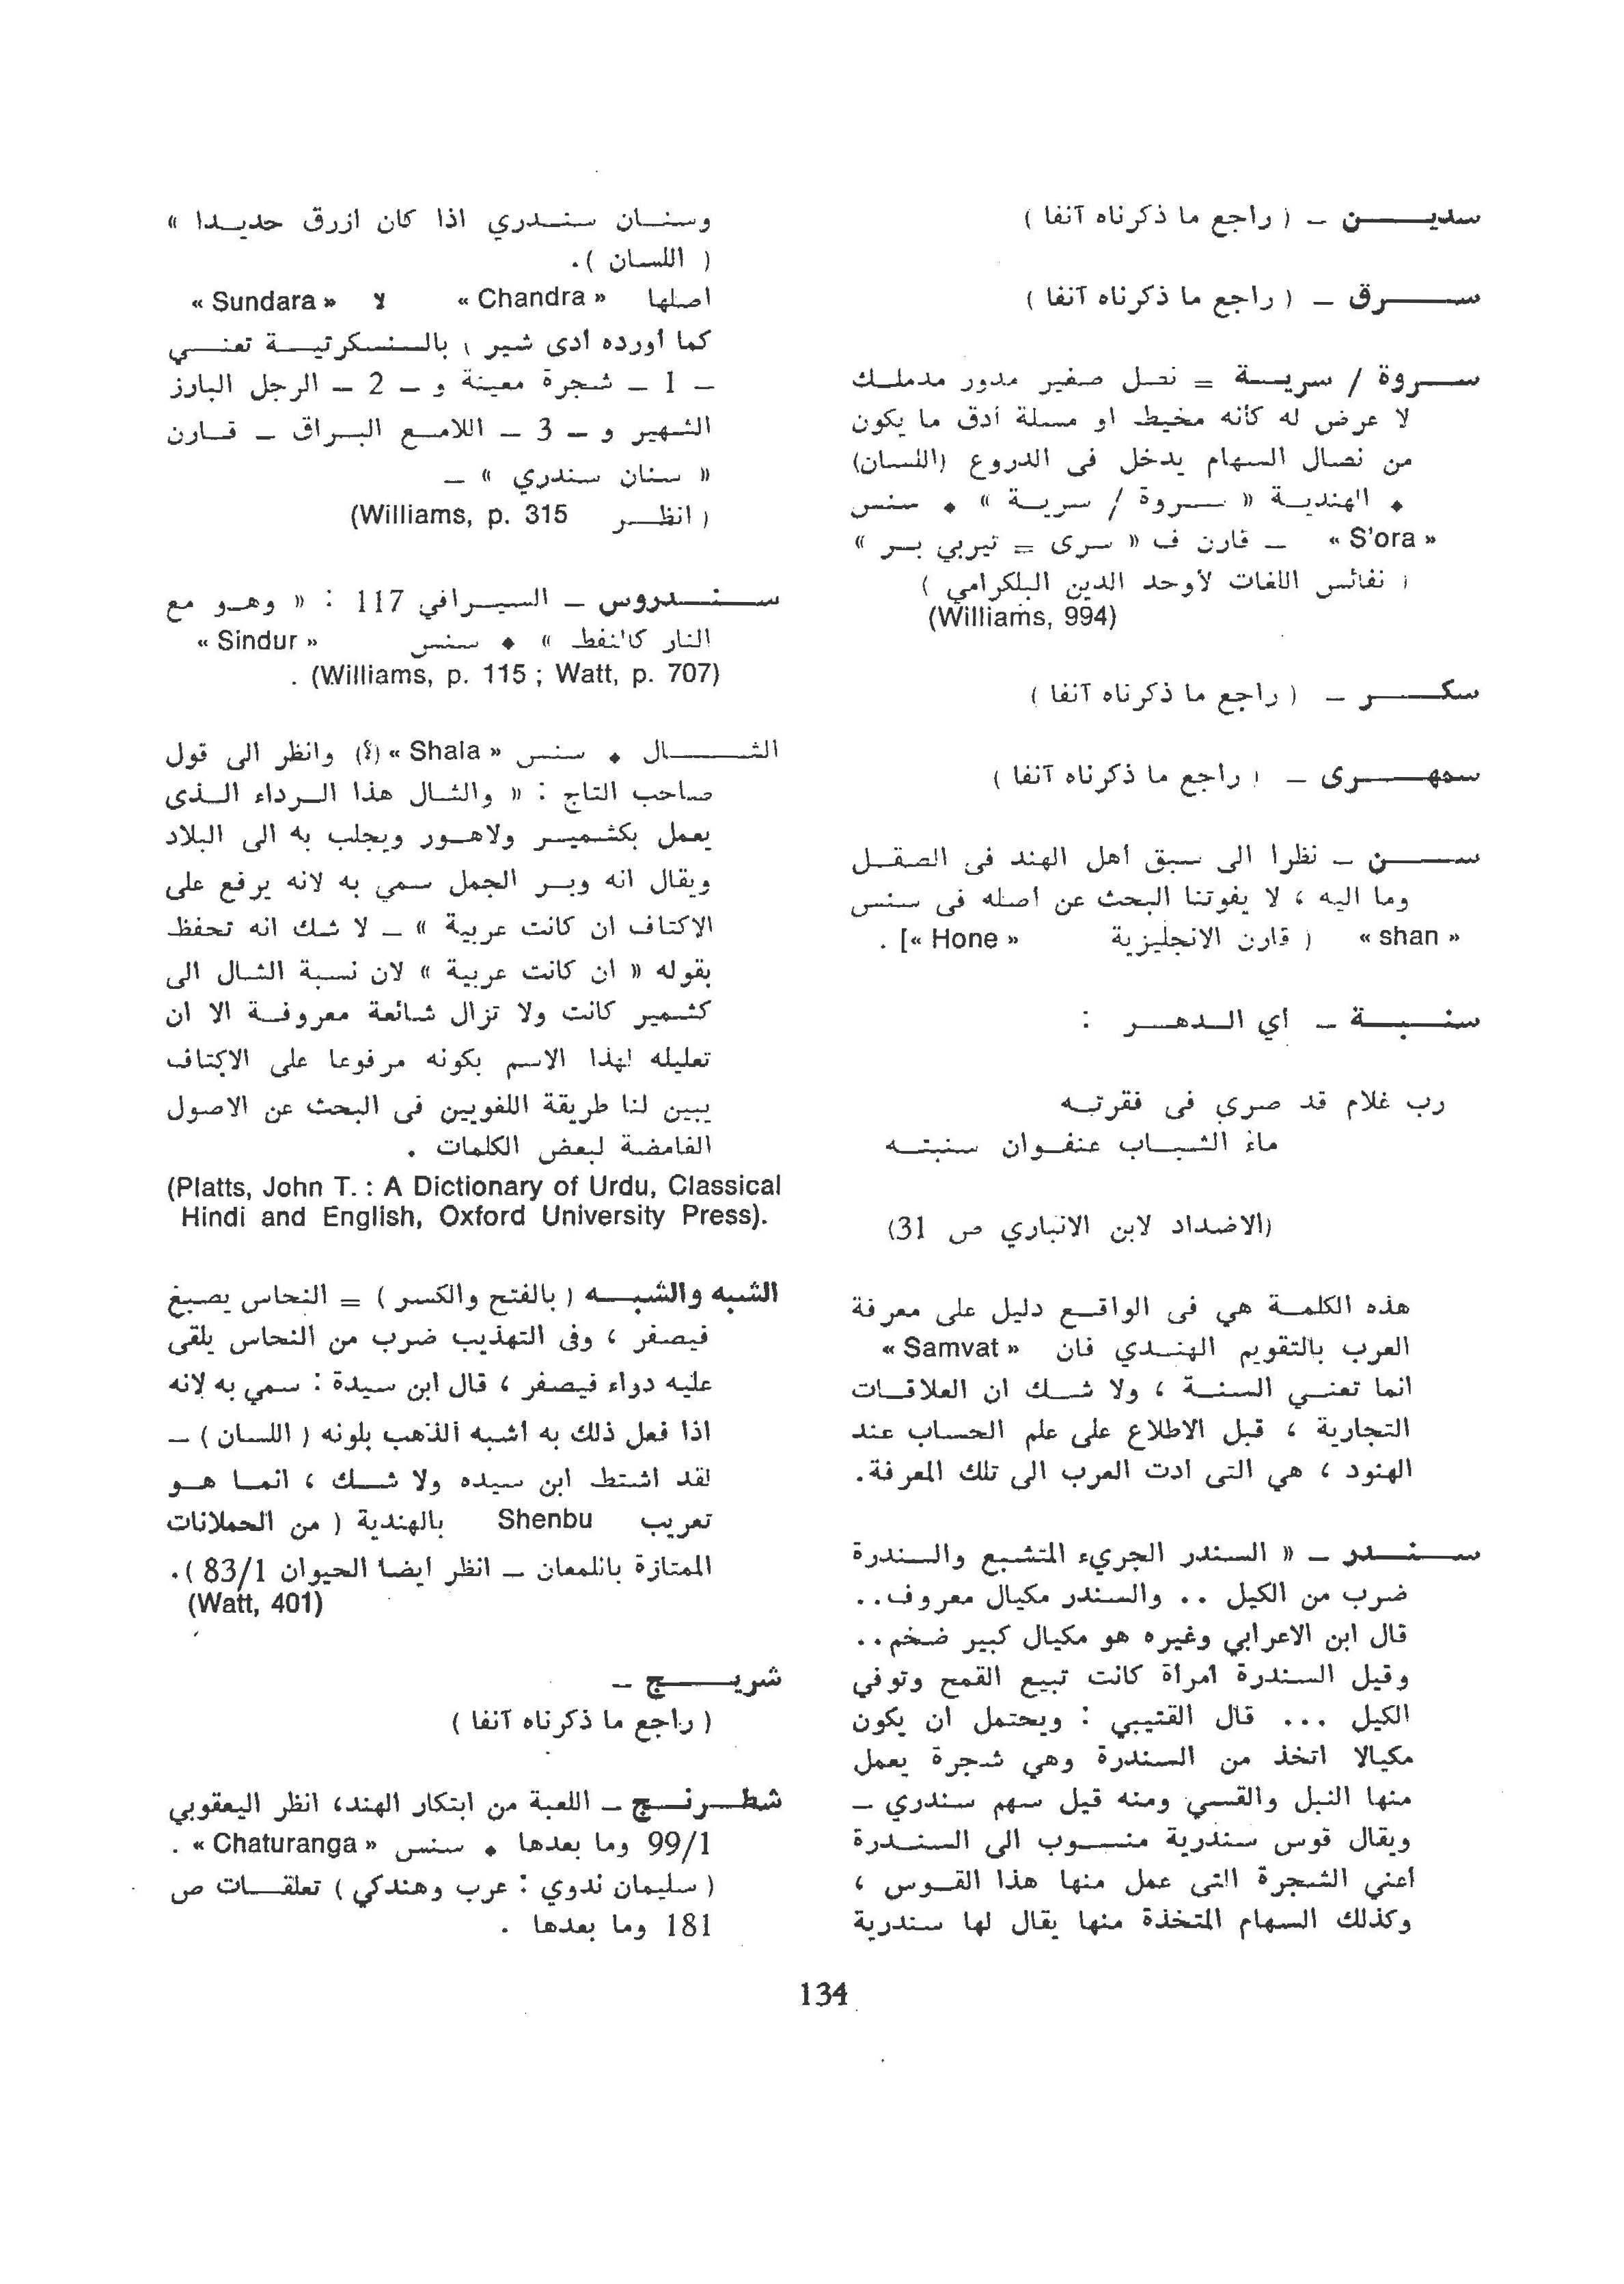 سدين – ( راجع ما ذكرناه آنفا )
سرق – ( راجع ما ذكرناه آنفا )
سروة / سرية = نصل صغير مدور مدملك
لا عرض له كأنه مخيط او مسلة أدق ما يكون
من نصال السهام يدخل فى الدروع (اللسان)
♦ الهندية « سروة / سرية » ♦ سنس
« S'ora » – قارن ف « سرى = تيربي بر »
( نفائس اللغات لأوحد الدين البلكرامي )
(Williams, 994)
سكر – ( راجع ما ذكرناه آنفا )
سمهرى – ( راجع ما ذكرناه آنفا )
سن – نظرا الى سبق أهل الهند فى الصقل
وما اليه ، لا يفوتنا البحث عن اصله فى سنس
« shan » ( قارن الانجليزية « Hone »] .
سنبة – أي الدهر :
رب غلام قد صري فى فقرته
ماءُ الشباب عنفوان سنبته
(الاضداد لابن الانباري ص 31)
هذه الكلمة هي فى الواقع دليل على معرفة
العرب بالتقويم الهندي فان « Samvat »
انما تعني السنة ، ولا شك ان العلاقات
التجارية ، قبل الاطلاع على علم الحساب عند
الهنود ، هي التى ادت العرب الى تلك المعرفة.
سندر – « السندر الجريء المتشبع والسندرة
ضرب من الكيل .. والسندر مكيال معروف..
قال ابن الاعرابي وغيره هو مكيال كبير ضخم..
وقيل السندرة امرأة كانت تبيع القمح وتوفي
الكيل ... قال القتيبي : ويحتمل ان يكون
مكيالا اتخذ من السندرة وهي شجرة يعمل
منها النبل والقسي ومنه قيل سهم سندري –
ويقال قوس سندرية منسوب الى السندرة
أعني الشجرة التى عمل منها هذا القوس ،
وكذلك السهام المتخذة منها يقال لها سندرية
وسنان سندري اذا كان ازرق حديدا »
( اللسان ).
اصلها « Chandra » لا « Sundara »
كما أورده أدى شير ، بالسنسكرتية تعني
– 1 – شجرة معينة و – 2 – الرجل البارز
الشهير و – 3 – اللامع البراق – قارن
« سنان سندري » –
( انظر Williams, p. 315)
سندروس – السيرافي 117 : « وهو مع
النار كالنفط » ♦ سنس « Sindur »
(Williams, p. 115 ; Watt, p. 707) .
الشال ♦ سنس « Shala » (؟) وانظر الى قول
صاحب التاج : « والشال هذا الرداء الذى
يعمل بكشمير ولاهور ويجلب به الى البلاد
ويقال انه وبر الجمل سمي به لانه يرفع على
الاكتاف ان كانت عربية » – لا شك انه تحفظ
بقوله « ان كانت عربية » لان نسبة الشال الى
كشمير كانت ولا تزال شائعة معروفة الا ان
تعليله لهذا الاسم بكونه مرفوعا على الاكتاف
يبين لنا طريقة اللغويين فى البحث عن الاصول
الغامضة لبعض الكلمات .
(Platts, John T. : A Dictionary of Urdu, Classical
Hindi and English, Oxford University Press).
الشبه والشبه ( بالفتح والكسر ) = النحاس يصبغ
فيصفر ، وفى التهذيب ضرب من النحاس يلقى
عليه دواء فيصفر ، قال ابن سيدة : سمي به لانه
اذا فعل ذلك به أشبه الذهب بلونه ( اللسان ) –
لقد اشتط ابن سيده ولا شك ، انما هو
تعريب Shenbu بالهندية ( من الحملانات
الممتازة باللمعان – انظر ايضا الحيوان 83/1 ).
(Watt, 401)
شريج –
( راجع ما ذكرناه آنفا )
شطرنج – اللعبة من ابتكار الهند، انظر اليعقوبي
99/1 وما بعدها ♦ سنس « Chaturanga » .
( سليمان ندوي : عرب وهندكي ) تعلقات ص
181 وما بعدها .
134